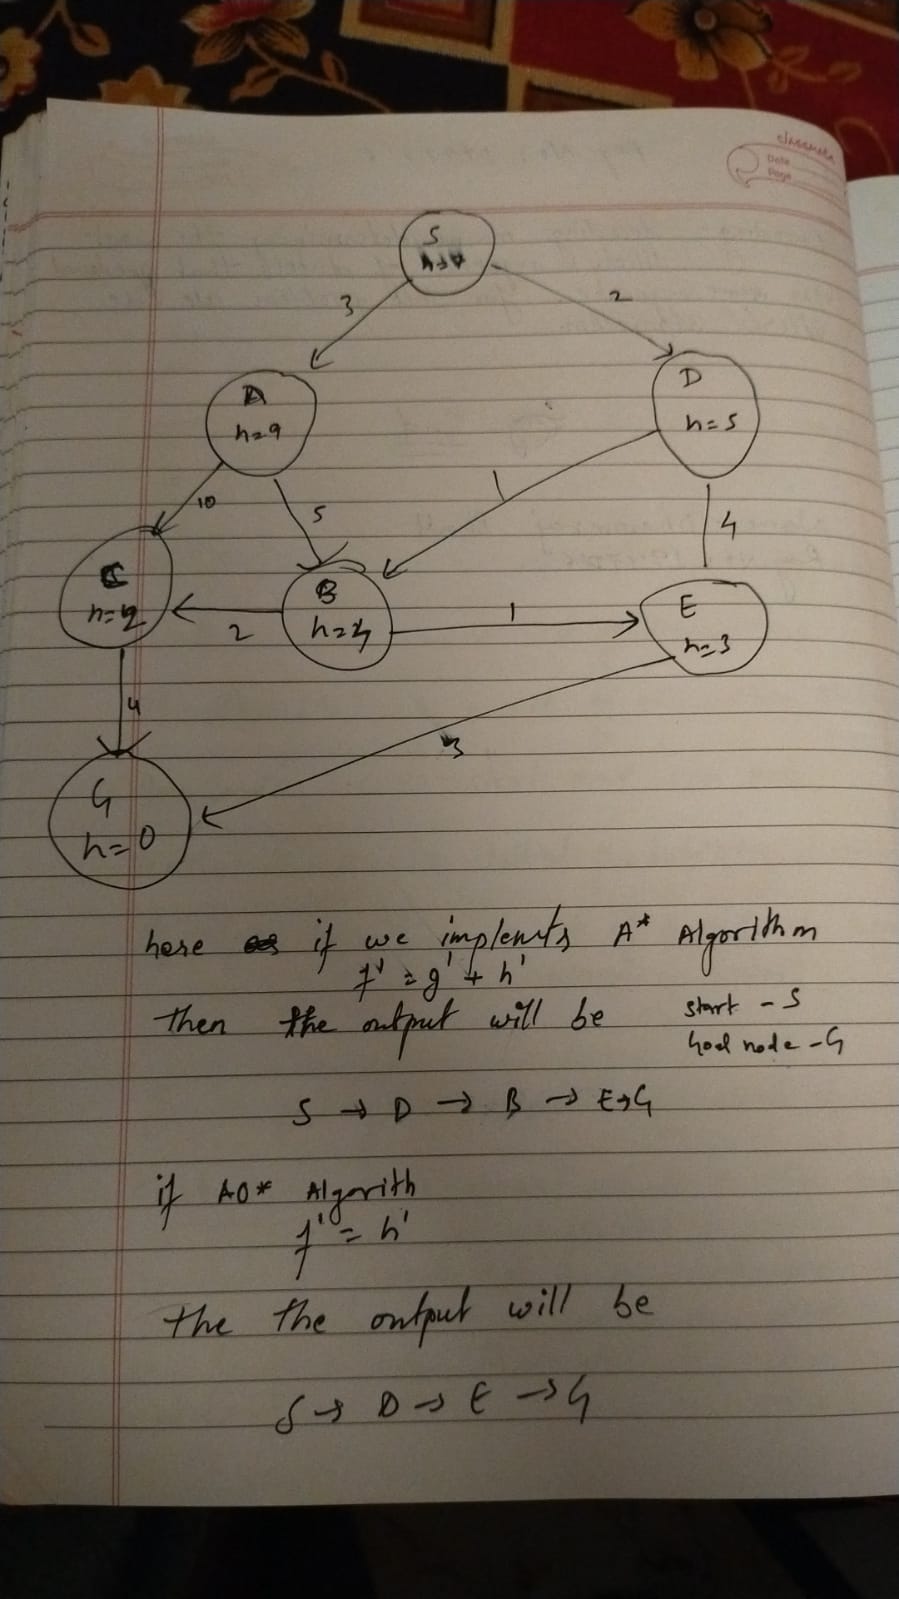 classmate
Date
Page
S
3
2
A
h=9
D
h=5
10
5
1
4
C
B
E
h=3
2
1
4
3
G
h=0
here if we implemts A* Algorithm
f' = g' + h'
Then the output will be
start - S
Goal node - G
S → D → B → E → G
if AO* Algorith
f' = h'
the the output will be
S → D → E → G